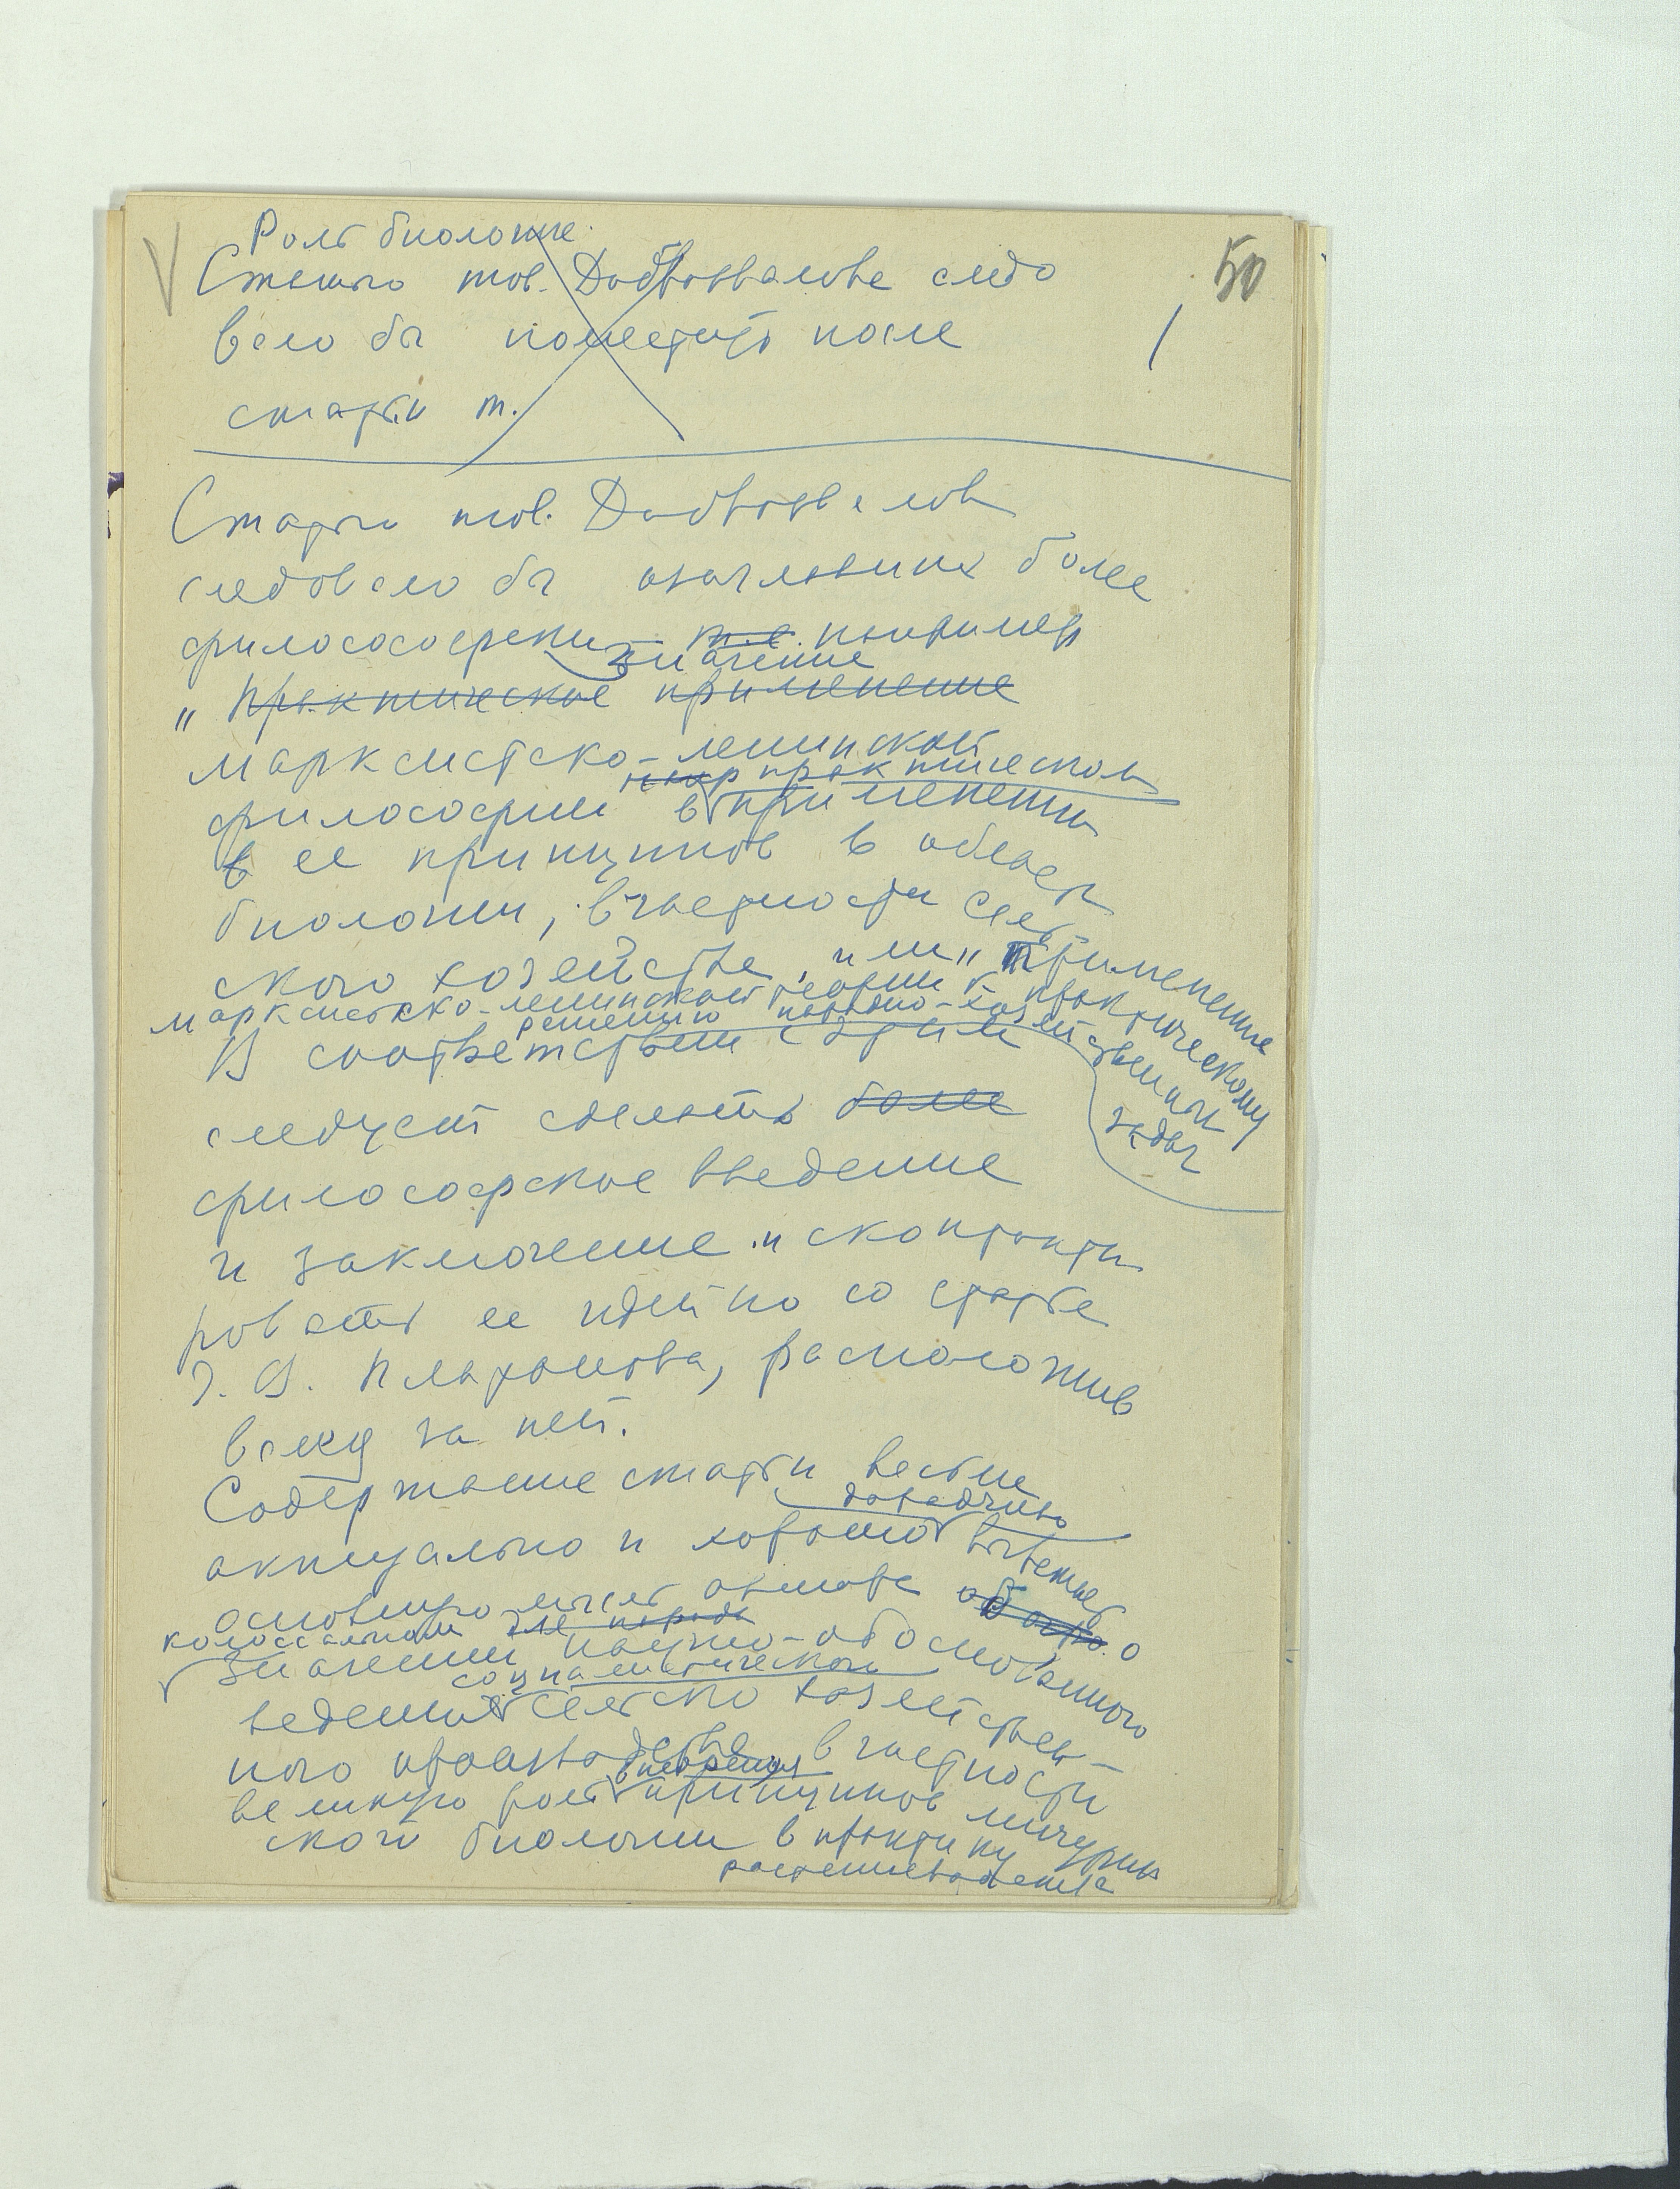 Роль биологии.
50
Статью тов. Добровалова следо
вало бы поместить после
статьи т.
1
Статью тов. Добровалов
следовало бы озаглавить более
философски т.е. например
значение
„ Практическое применение
марксистско-ленинской
практическом
философии в применении
в ее принципов в област
биологии, в частности сель
ского хозяйства, или „Применение
марксистско-ленинской теории к практическому
решению народно-хозяйственных
задач
В соответствии с этим
следует сделать более
философское введение
и заключение и сконтакти
ровать ее идейно со статье
Г. В. Платонова, расположив
вслед за ней.
Содержание статьи весьма
доходчиво
актуально и хорошо вытекает
основную мысль автора о
колоссальном для народа
значении научно-обоснованного
социалистического
ведения сельско хозяйствен-
ного производства, в частности
внедрения
великую роль принципов мичурин
ской биологии в практику
растениеводства